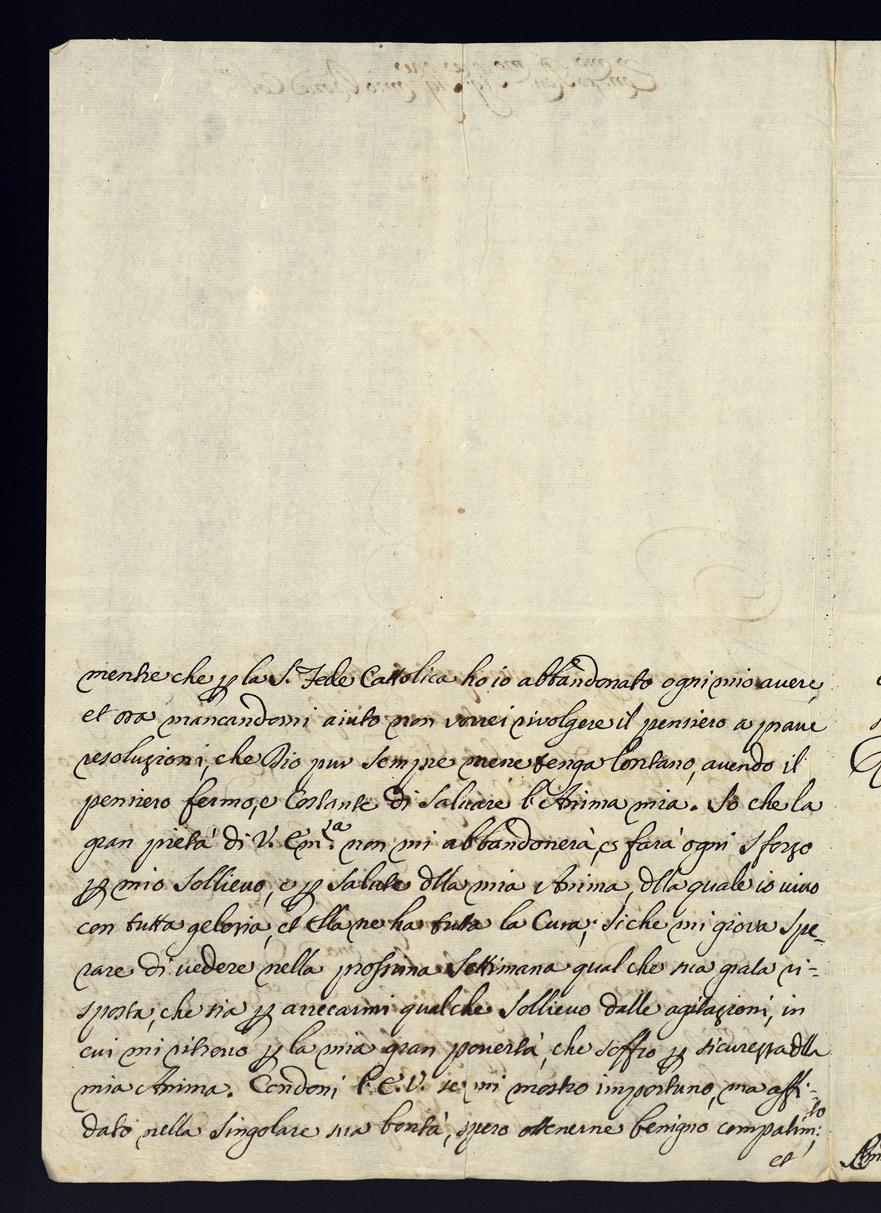 mentre che p la S. Fede Cattolica ho io abbandonato ogni mio avere,
et ora mancandomi aiuto non vorrei rivolgere il pensiero a prave
resoluzioni, che Dio pur sempre mene tenga lontano, avendo il
pensiero fermo, e Costante di Salvare l'Anima mia. So che la
gran pietà di V. Em.za non mi abbandonerà, e farà ogni sforzo
p mio Sollievo, e p salute dlla mia Anima, dlla quale io vivo
con tutta gelosia, et Ella ne ha tutta la Cura; Siche mi giova spe-
rare di vedere nella prossima Settimana qualche sua grata ri-
sposta, che sia p arrecarmi qualche Sollievo dalle agitazioni, in
cui mi ritrovo p la mia gran povertà, che soffro p sicurezza dlla
mia Anima. Condoni l'E.V. se mi mostro importuno, ma affi-
dato nella Singolare sua bontà, spero ottenerne benigno compatim:to
et